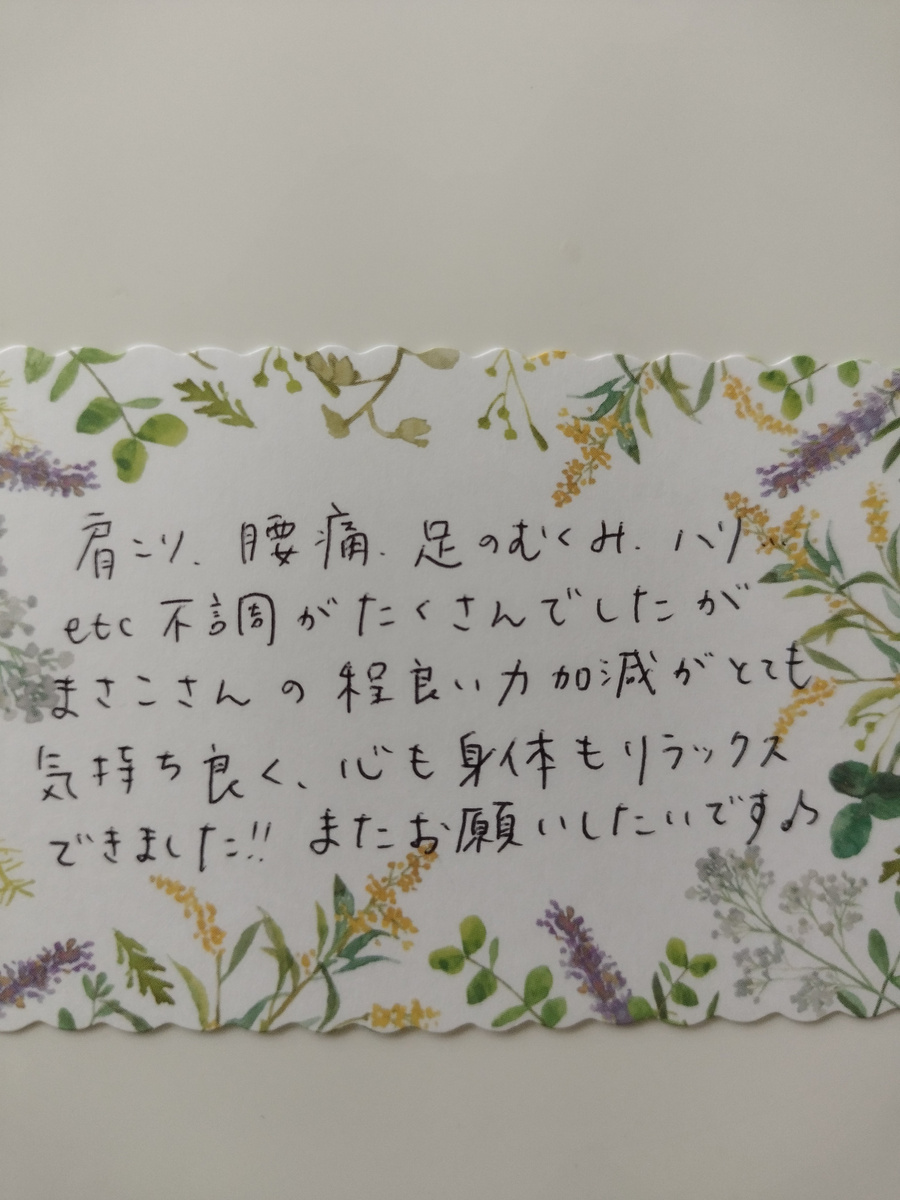 肩こり、腰痛、足のむくみ、ハリ…
etc 不調がたくさんでしたが
まさこさんの程良い力加減がとても
気持ち良く、心も身体もリラックス
できました!! またお願いしたいです♪